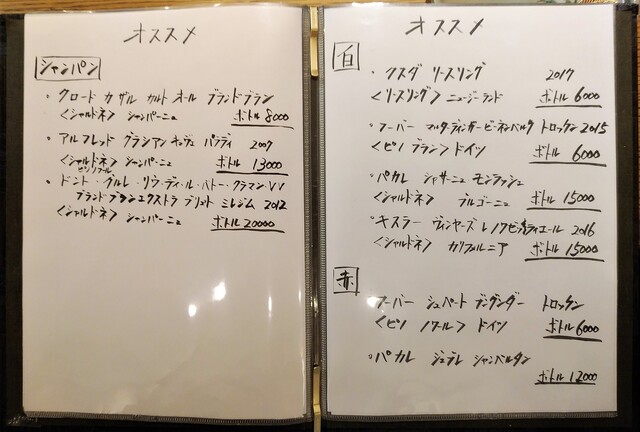 オススメ
シャンパン
・クロード カザル カルト オール ブランドブラン
<シャルドネ> シャンパーニュ ボトル 8000
・アルフレッド グラシアン キュヴェ パラディ 2007
<シャルドネ> シャンパーニュ ボトル 13000
ピノノワール
・ドント・グルレ・リウ・ディ・ル・バトー・クラマン VV
ブランドブラン エクストラ ブリュット ミレジム 2012
<シャルドネ> シャンパーニュ ボトル 20000
オススメ
白
・クスダ リースリング 2017
<リースリング> ニュージーランド ボトル 6000
・フーバー マルターディンガー ビーネンベルク トロッケン 2015
<ピノ ブラン> ドイツ ボトル 6000
・パカレ シャサーニュ モンラッシェ
<シャルドネ> ブルゴーニュ ボトル 15000
・キスラー ヴィンヤーズ レ ノワゼッティエール 2016
<シャルドネ> カリフォルニア ボトル 15000
赤
フーバー シュペートブルグンダー トロッケン
<ピノ ノワール> ドイツ ボトル 6000
・パカレ ジュヴレ シャンベルタン
ボトル 12000